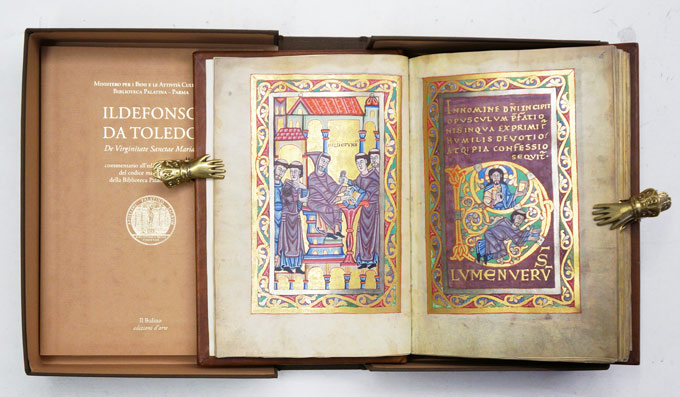 MINISTERO PER I BENI E LE ATTIVITÀ CUL
BIBLIOTECA PALATINA - PARMA
ILDEFONSO
DA TOLEDO
De Virginitate Sanctae Maria
commentario all'edi
del codice
della Biblioteca Pa
Il Bulino
edizioni d'arte
INNOMINE DNI INCIPIT
OPUSCULUM PFATIO
NIS INQUA EXPRIMIT
HUMILIS DEVOTIO
CONFESSIO
SEQUIT
D
S
LUMEN VERU